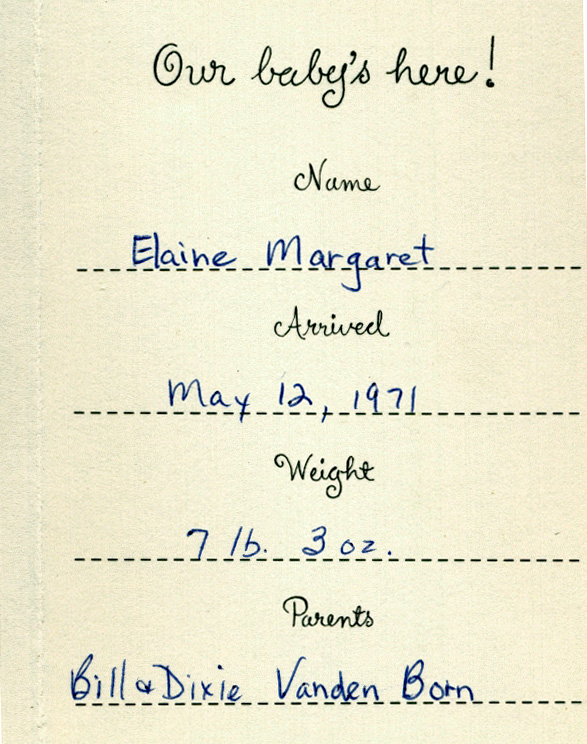 Our baby's here!
Name
Elaine Margaret
Arrived
May 12, 1971
Weight
7 lb. 3 oz.
Parents
Bill & Dixie Vanden Born